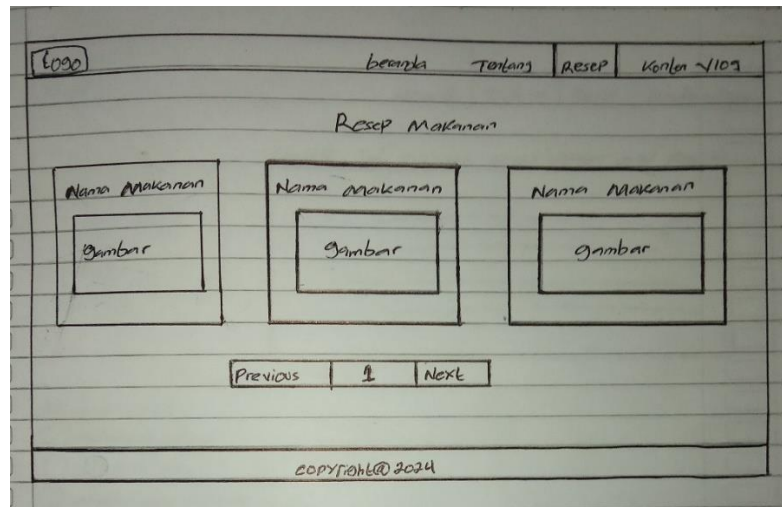 Logo beranda Tentang Resep Konten Vlog
Resep Makanan
Nama Makanan Nama Makanan Nama Makanan
gambar gambar gambar
Previous 1 Next
copyright@2024